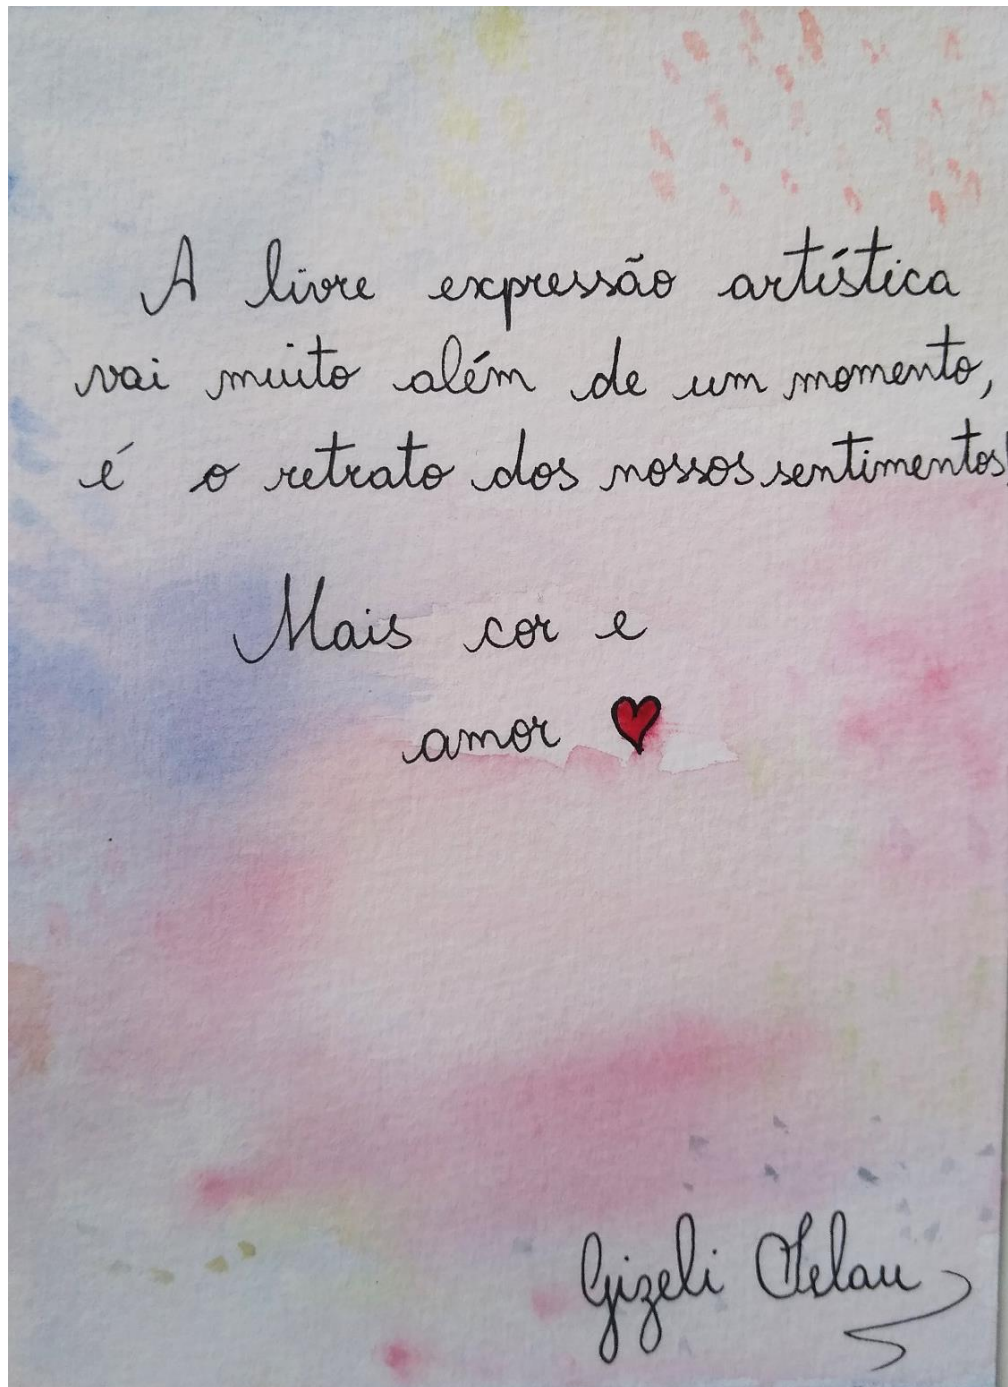 A livre expressão artística
vai muito além de um momento,
é o retrato dos nossos sentimentos!
Mais cor e
amor ♥
Gizeli